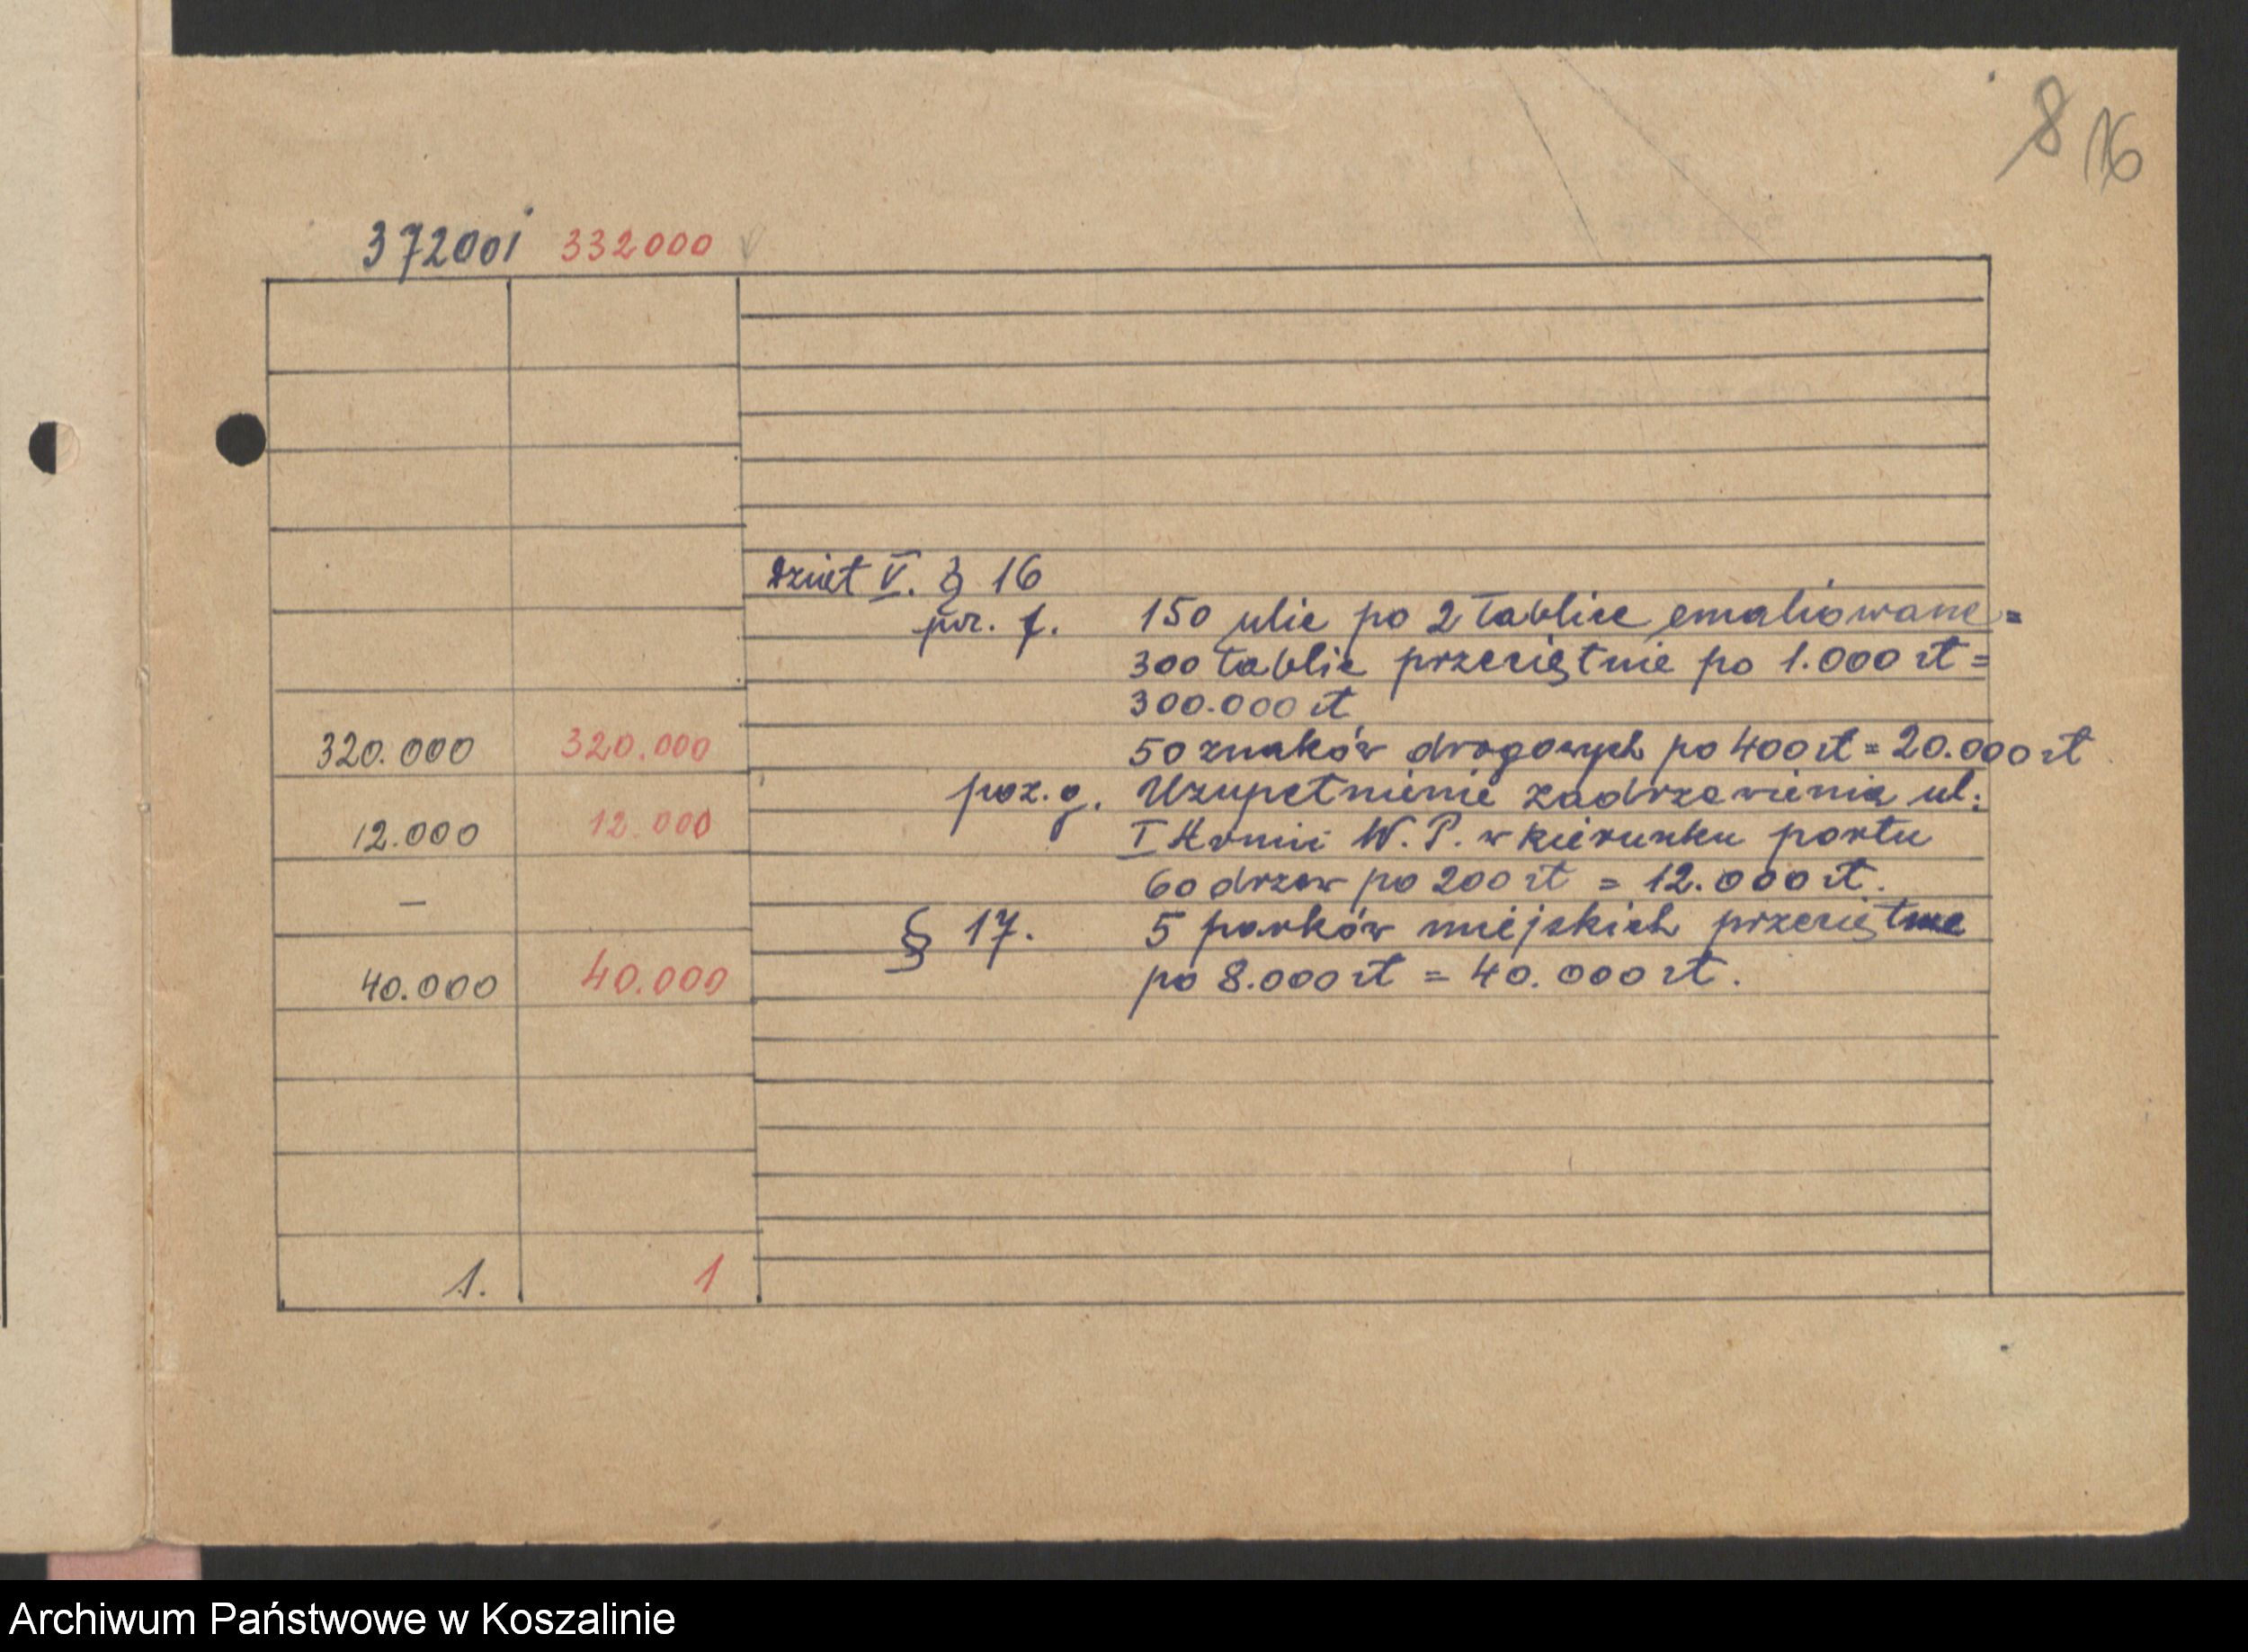 8 16
372001 332000
Dział V. § 16
poz. f. 150 ulic po 2 tablice emaliowane =
300 tablic przeciętnie po 1.000 zł =
300.000 zł
320.000 320.000 50 znaków drogowych po 400 zł = 20.000 zł
poz. g. Uzupełnienie zadrzewienia ul:
12.000 12.000 I Armii W.P. w kierunku portu
— 60 drzew po 200 zł = 12.000 zł.
§ 17. 5 parków miejskich przeciętnie
40.000 40.000 po 8.000 zł = 40.000 zł.
1. 1
Archiwum Państwowe w Koszalinie